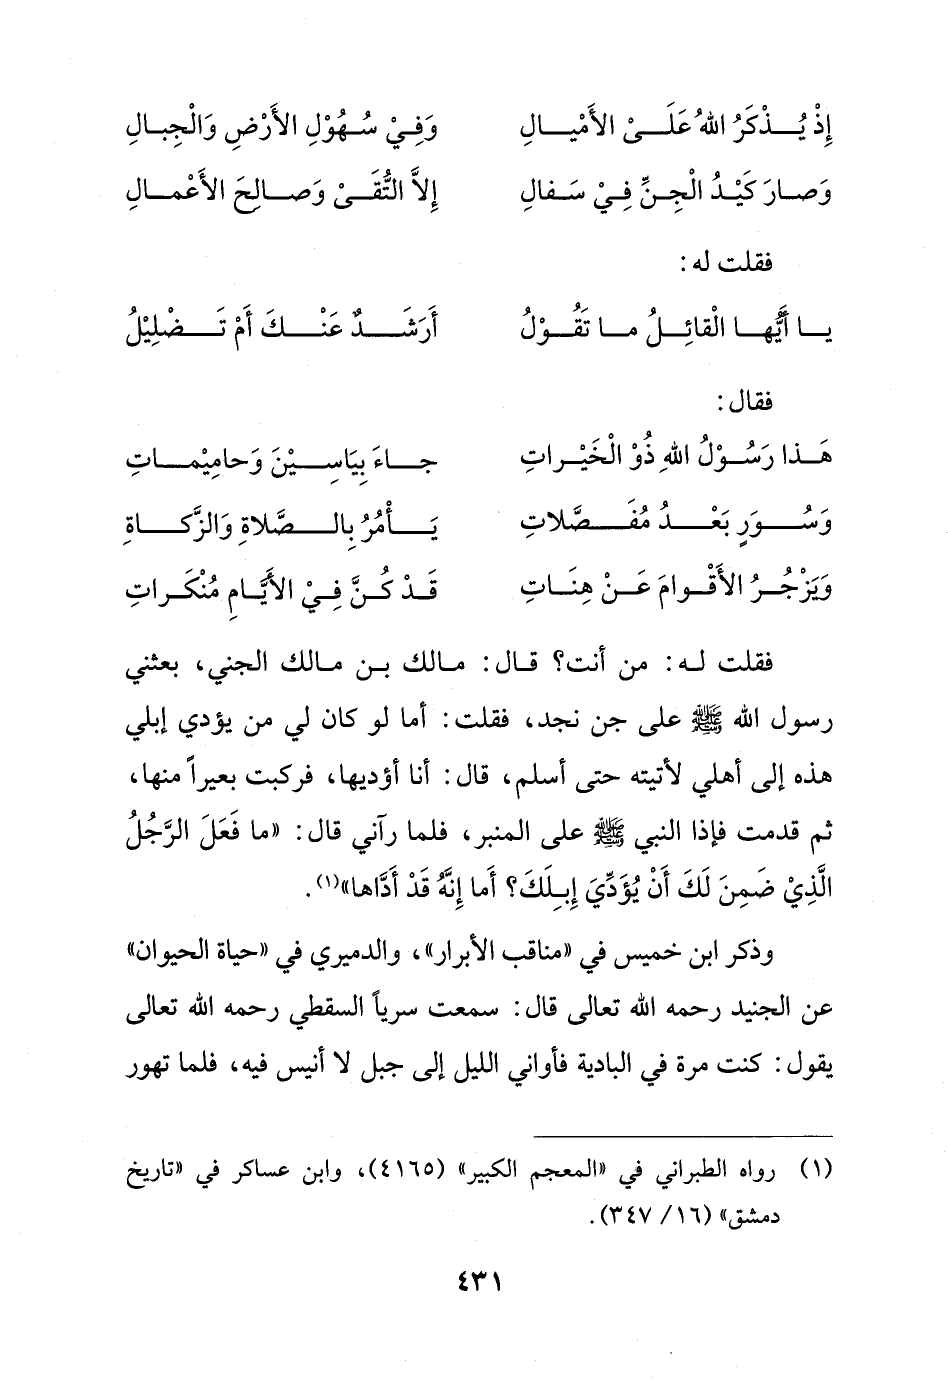 إِذْ يُـذْكَرُ اللهُ عَلَـىْ الأَمْيَـالِ وَفِيْ سُهُوْلِ الأَرْضِ وَالْجِبالِ
وَصارَ كَيْدُ الْجِنِّ فِيْ سَفالِ إِلاَّ التُّقَىْ وَصالِحَ الأَعْمالِ
فقلت له:
يا أَيُّها الْقائِلُ ما تَقُوْلُ أَرَشَدٌ عَنْكَ أَمْ تَضْلِيْلُ
فقال:
هَذا رَسُوْلُ اللهِ ذُوْ الْخَيْراتِ جاءَ بِيَاسِيْنَ وَحامِيْماتِ
وَسُوَرٍ بَعْدُ مُفَصَّلاتِ يَأْمُرُ بِالصَّلاةِ وَالزَّكاةِ
وَيَزْجُرُ الأَقْوامَ عَنْ هِنَاتِ قَدْ كُنَّ فِيْ الأَيَّامِ مُنْكَراتِ
فقلت له: من أنت؟ قال: مالك بن مالك الجني، بعثني
رسول الله ﷺ على جن نجد، فقلت: أما لو كان لي من يؤدي إبلي
هذه إلى أهلي لأتيته حتى أسلم، قال: أنا أؤديها، فركبت بعيراً منها،
ثم قدمت فإذا النبي ﷺ على المنبر، فلما رآني قال: «ما فَعَلَ الرَّجُلُ
الَّذِيْ ضَمِنَ لَكَ أَنْ يُؤَدِّيَ إِبِلَكَ؟ أَما إِنَّهُ قَدْ أَدَّاها»(١).
وذكر ابن خميس في «مناقب الأبرار»، والدميري في «حياة الحيوان»
عن الجنيد رحمه الله تعالى قال: سمعت سرياً السقطي رحمه الله تعالى
يقول: كنت مرة في البادية فأواني الليل إلى جبل لا أنيس فيه، فلما تهور
(١) رواه الطبراني في «المعجم الكبير» (٤١٦٥)، وابن عساكر في «تاريخ
دمشق» (١٦/ ٣٤٧).
٤٣١